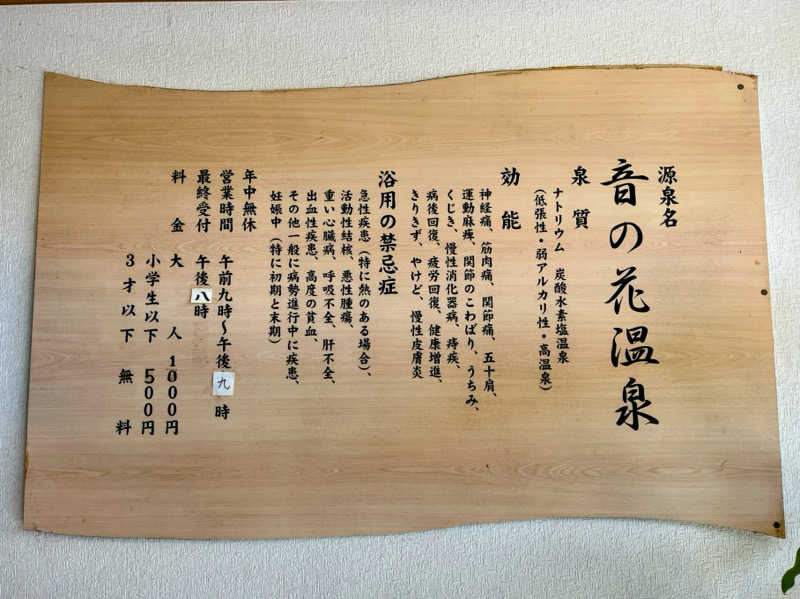 源泉名
音の花温泉
泉質
ナトリウム 炭酸水素塩温泉
(低張性・弱アルカリ性・高温泉)
効能
神経痛、筋肉痛、関節痛、五十肩、
運動麻痺、関節のこわばり、うちみ、
くじき、慢性消化器病、痔疾、
病後回復、疲労回復、健康増進、
きりきず、やけど、慢性皮膚炎
浴用の禁忌症
急性疾患(特に熱のある場合)、
活動性結核、悪性腫瘍、
重い心臓病、呼吸不全、肝不全、
出血性疾患、高度の貧血、
その他一般に病勢進行中に疾患、
妊娠中(特に初期と末期)
年中無休
営業時間 午前九時~午後九時
最終受付 午後八時
料金 大人 1000円
小学生以下 500円
3才以下 無料